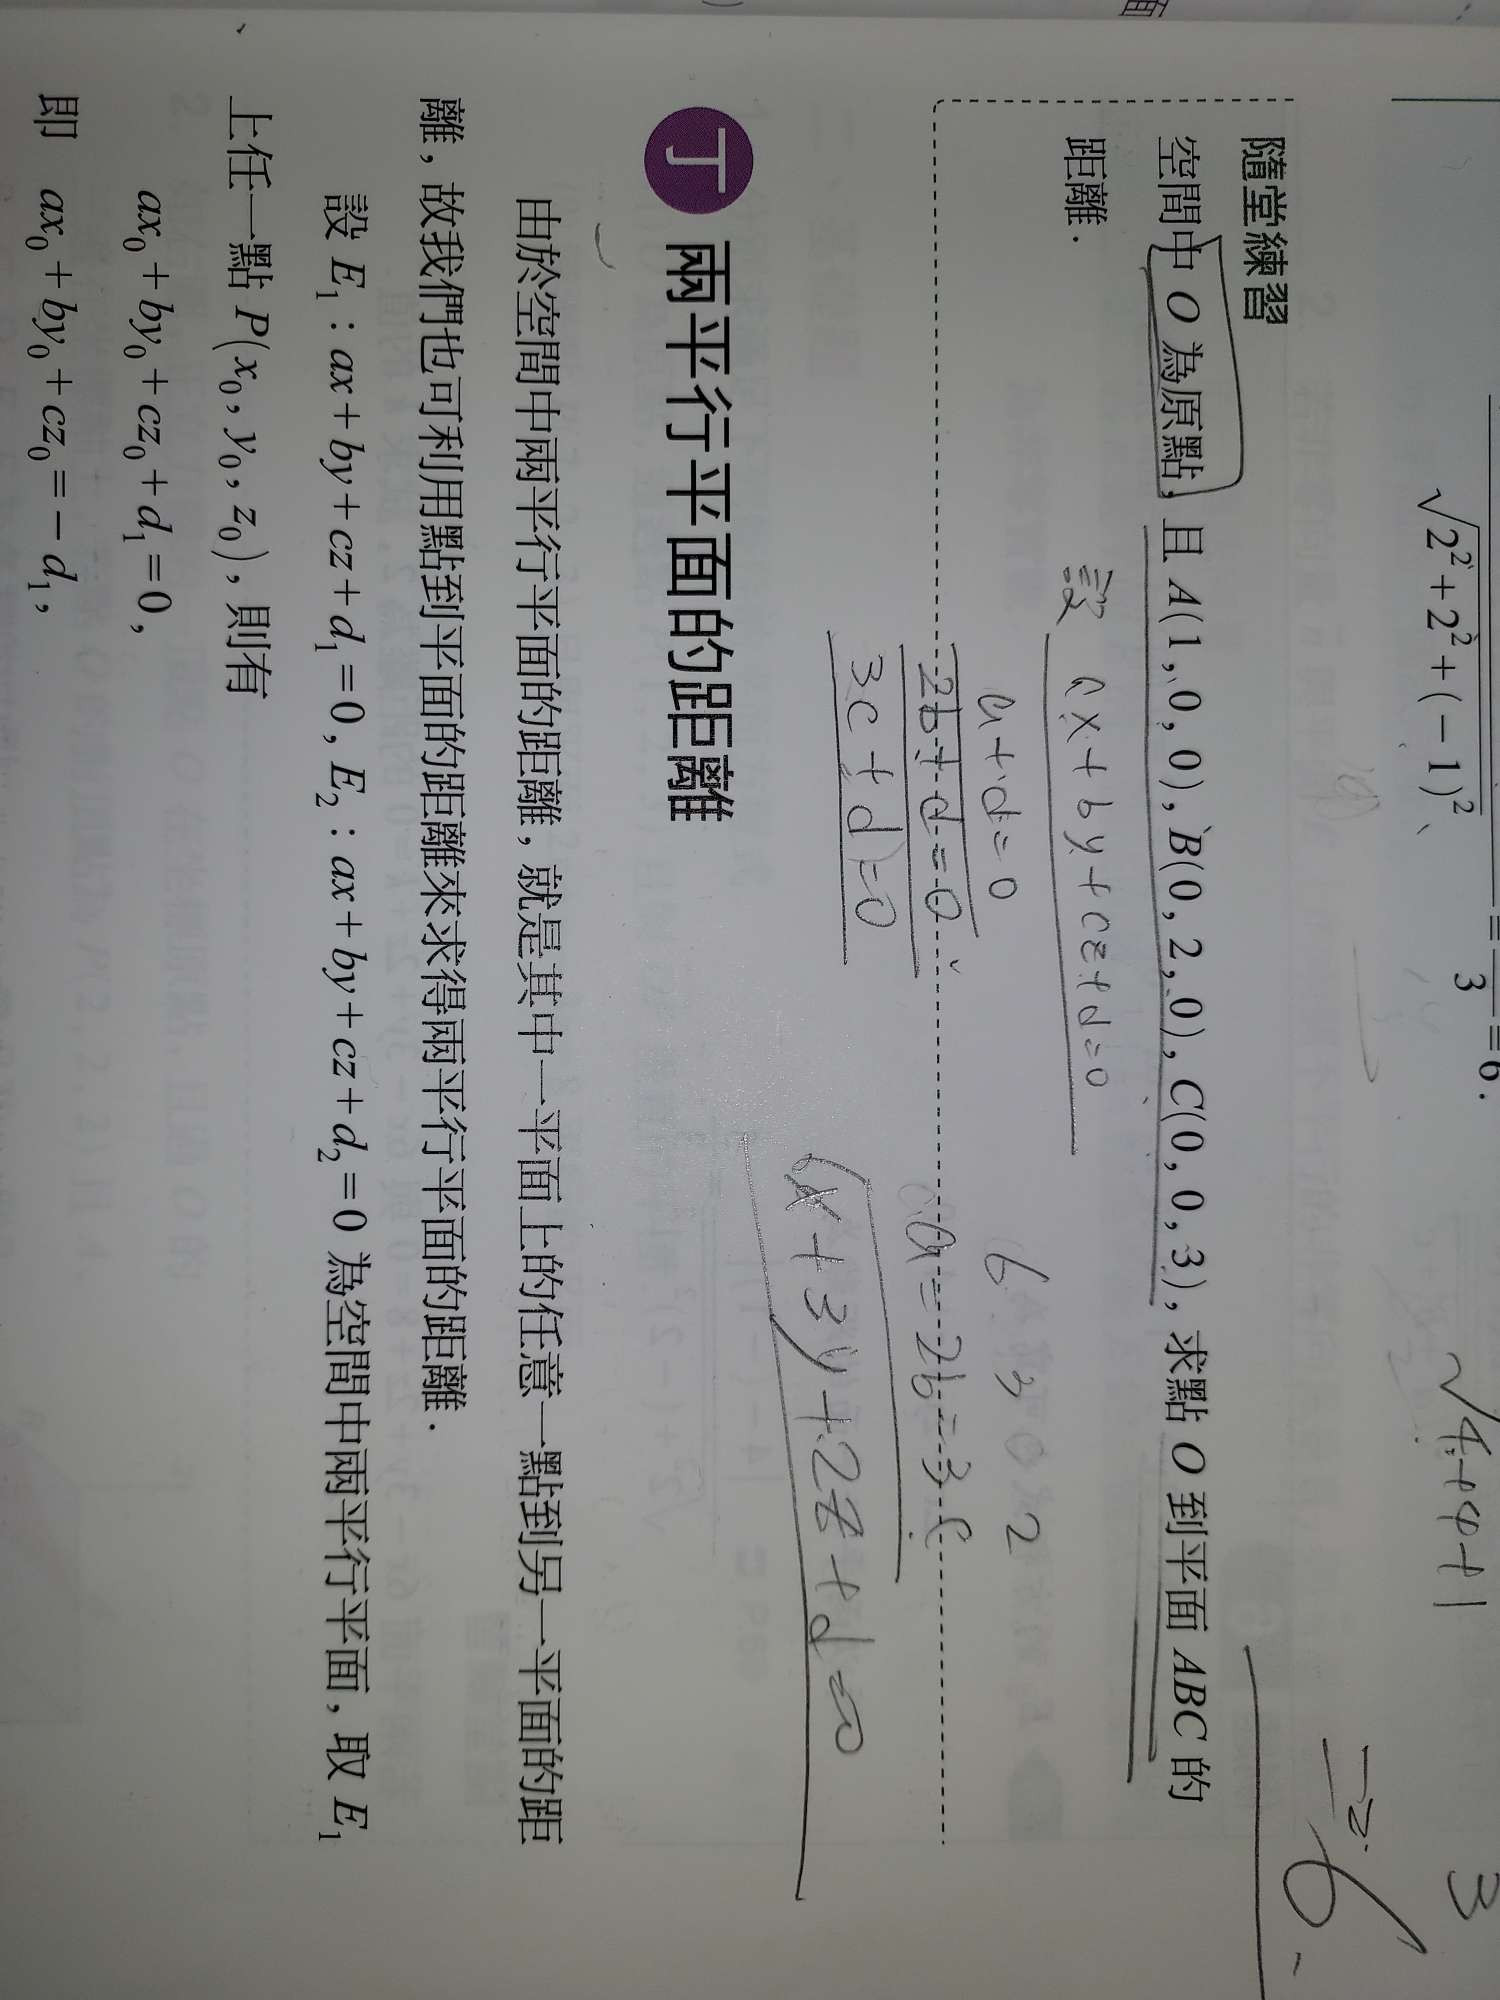 面
√2²+2²+(-1)² = 3 = 6.
√4+4+1
3
=6
隨堂練習
空間中 O 為原點,且 A(1, 0, 0), B(0, 2, 0), C(0, 0, 3),求點 O 到平面 ABC 的
距離.
設 ax+by+cz+d=0
a+d=0
2b+d=0
3c+d=0
6 3 2
a=2b=3c
6x+3y+2z+d=0
丁 兩平行平面的距離
由於空間中兩平行平面的距離,就是其中一平面上的任意一點到另一平面的距
離,故我們也可利用點到平面的距離來求得兩平行平面的距離.
設 E₁:ax+by+cz+d₁=0, E₂:ax+by+cz+d₂=0 為空間中兩平行平面,取 E₁
上任一點 P(x₀, y₀, z₀),則有
ax₀+by₀+cz₀+d₁=0,
即 ax₀+by₀+cz₀=-d₁,